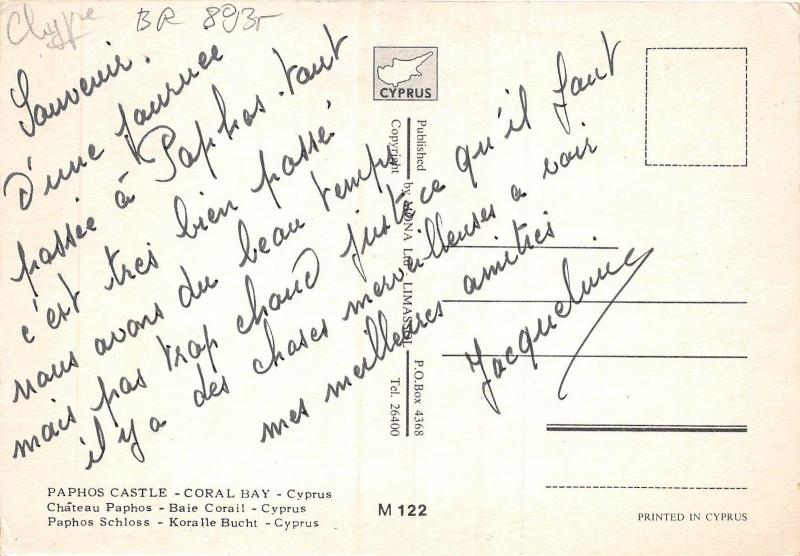 Chypre
BR 893r
Souvenir.
D'une journée
passée à Paphos. tout
c'est très bien passé
nous avons du beau temps
mais pas trop chaud juste ce qu'il faut
il y a des choses merveilleuses a voir
mes meilleures amitiés
Jacqueline
CYPRUS
Published by MONA Ltd. LIMASSOL P.O.Box 4368
Copyright Tel. 26400
PAPHOS CASTLE - CORAL BAY - Cyprus
Château Paphos - Baie Corail - Cyprus
Paphos Schloss - Koralle Bucht - Cyprus
M 122
PRINTED IN CYPRUS